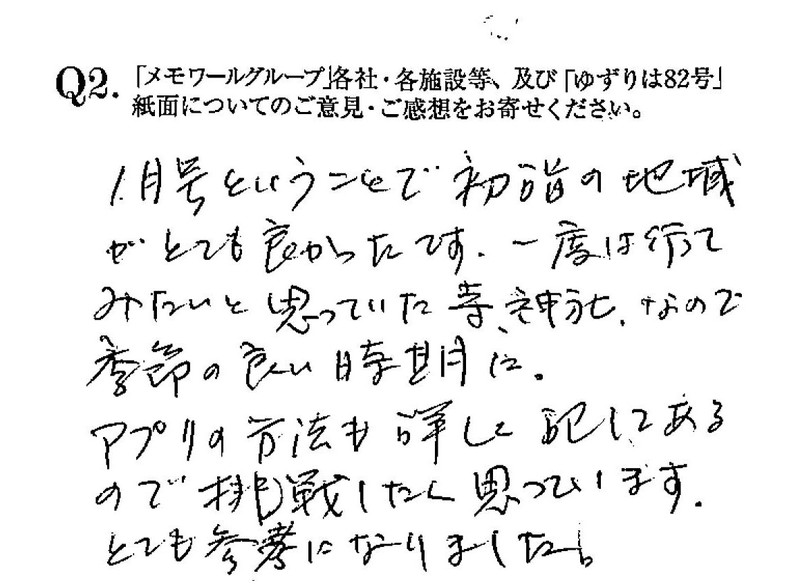 Q2.「メモワールグループ」各社・各施設等、及び「ゆずりは82号」
紙面についてのご意見・ご感想をお寄せください。
1月号ということで初詣の地域
がとても良かったです。一度は行って
みたいと思っていた寺、神社、なので
季節の良い時期に。
アプリの方法も詳しく記してある
ので挑戦したく思っています。
とても参考になりました。